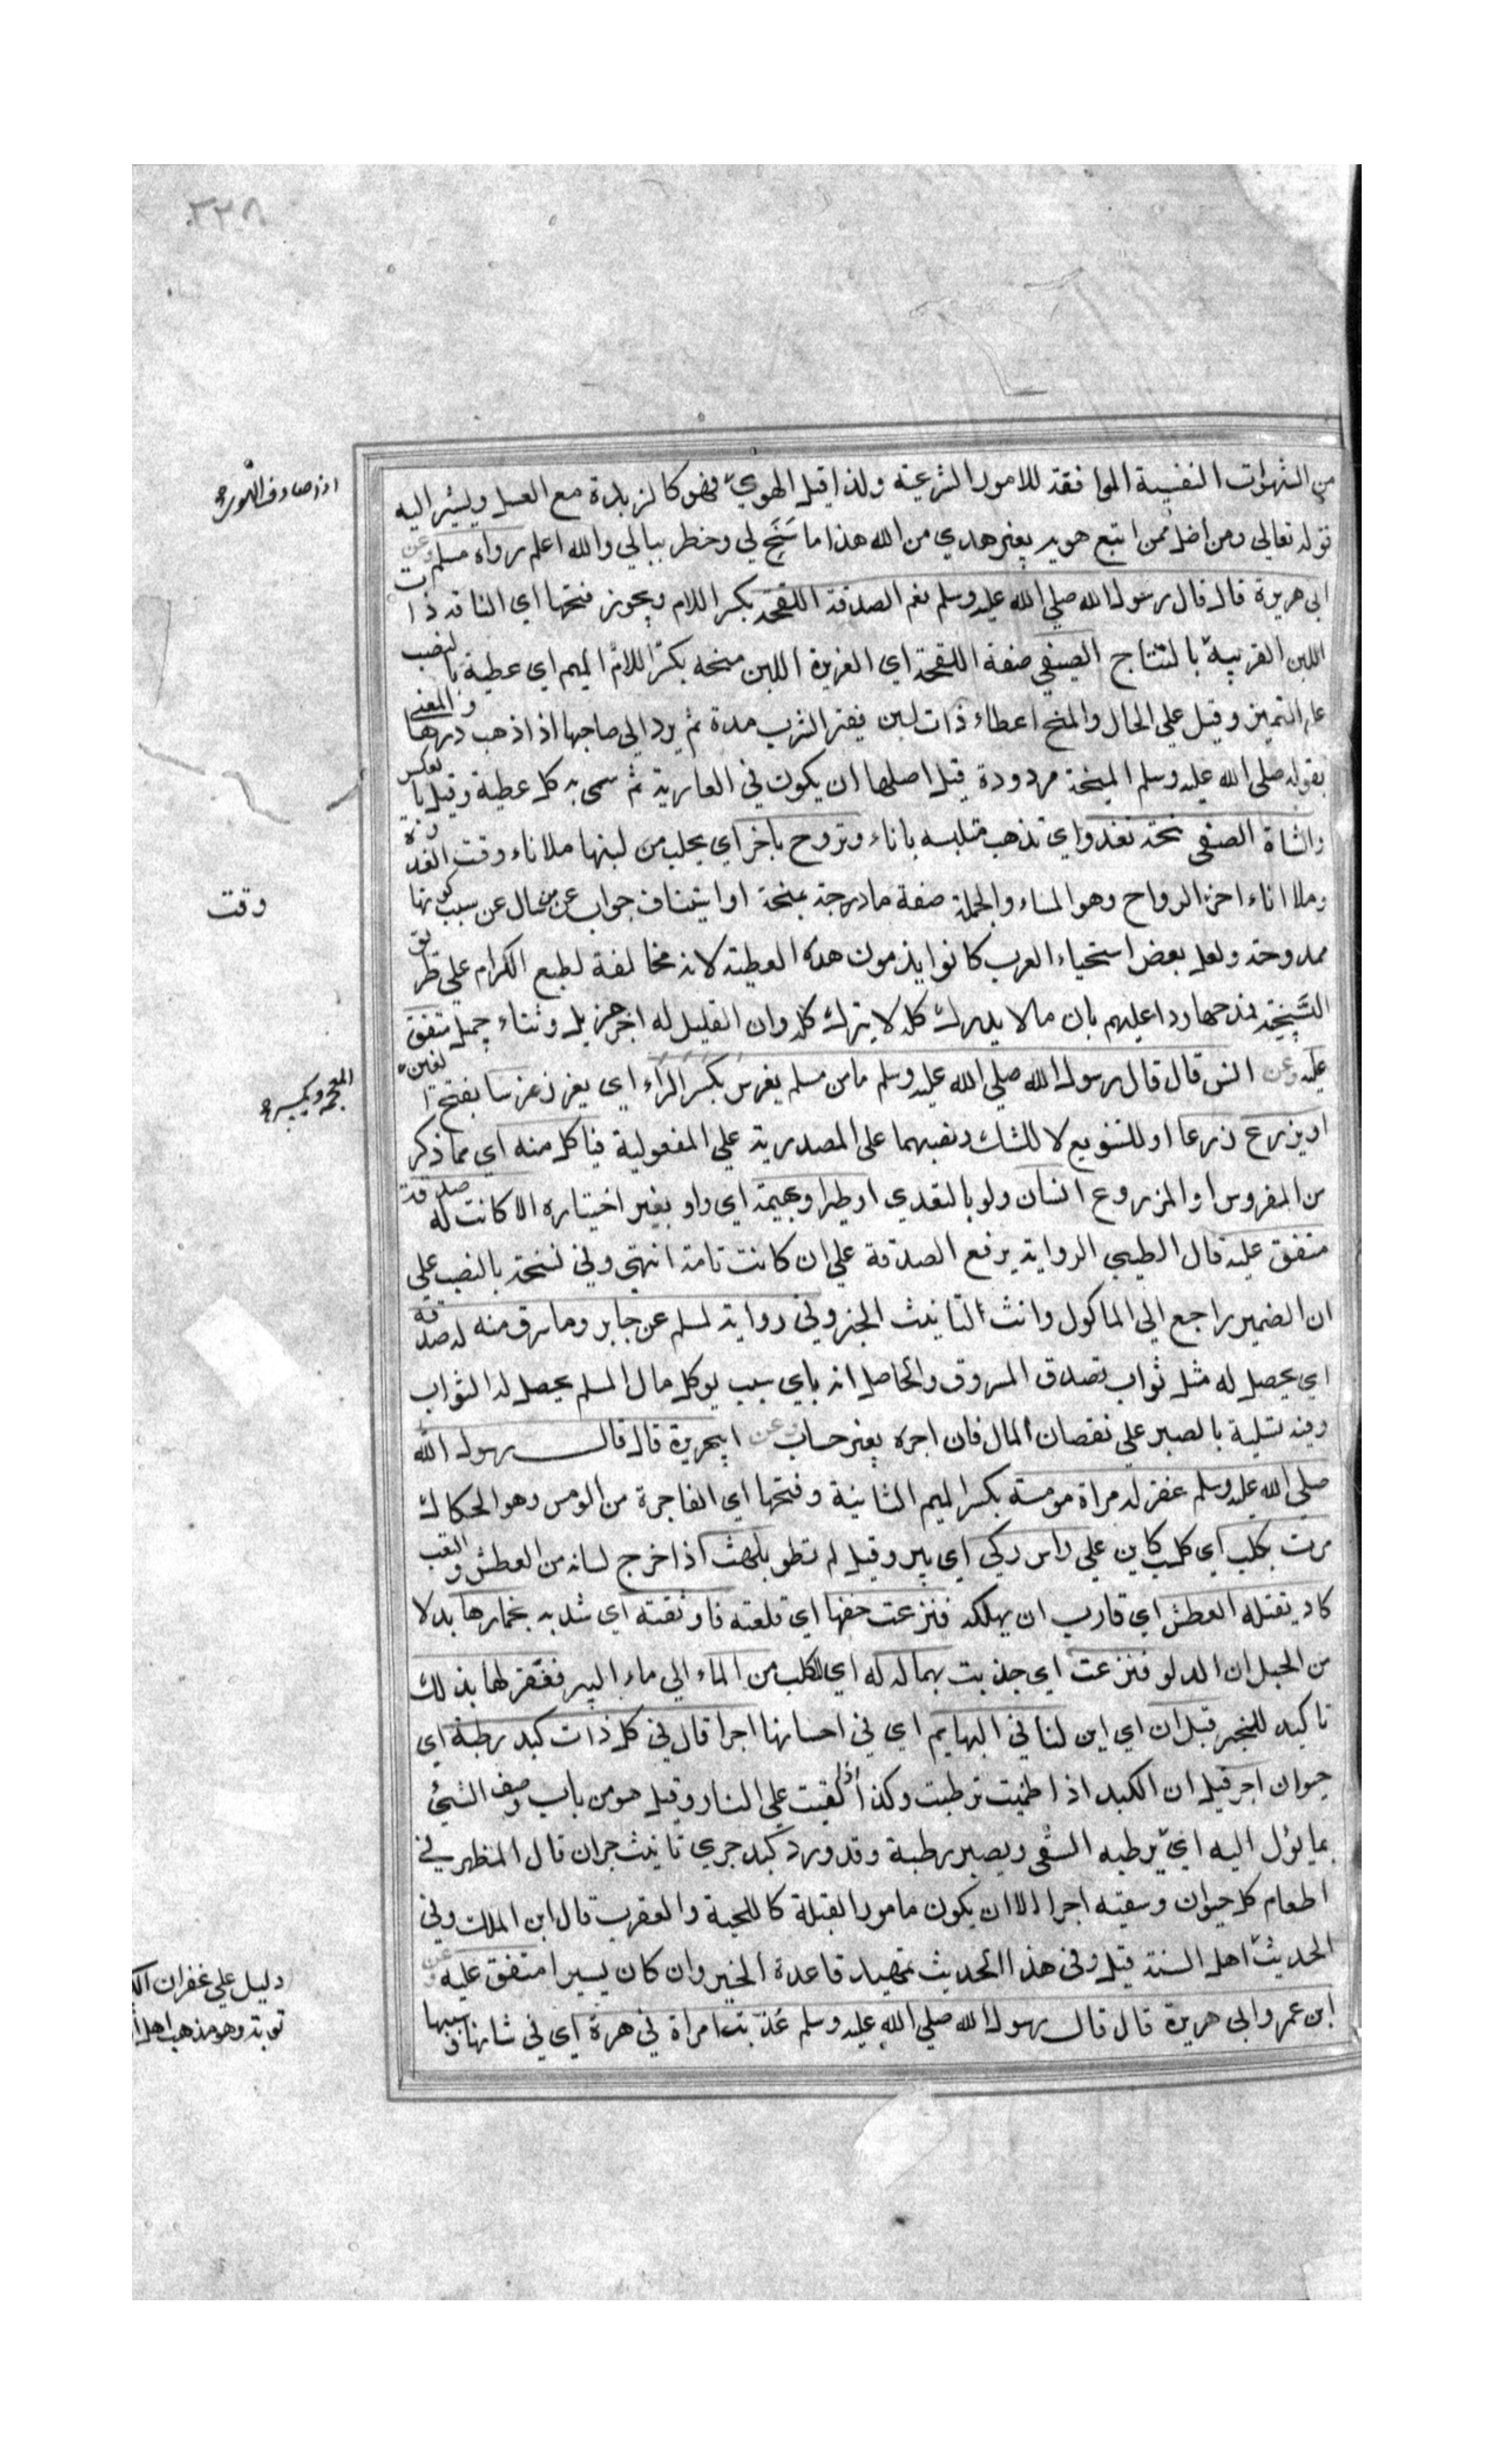 ٢٢٨
من الشهوات النفسية الموافقة للامور الشرعية ولذا قيل الهوي فهو كالزبدة مع العسل ويشير اليه
قوله تعالي ومن اضل ممن اتبع هويه بغير هدي من الله هذا ما سَنَحَ لي وخطر ببالي والله اعلم رواه مسلم وعن
ابي هريرة قال قال رسول الله صلي الله عليه وسلم نعم الصدقة اللقحة بكسر اللام ويجوز فتحها اي الناقة ذات
اللبن القريبة بالنتاج الصفي صفة اللقحة اي الغزيرة اللبن منحه بكسر اللام الميم اي عطية بالنصب
علي التميز وقيل علي الحال والمنح اعطاء ذات لبن فقير الشرب مدة ثم يرد الي صاحبها اذا ذهب درها والمعني
بقوله صلي الله عليه وسلم المنحة مردودة قيل اصلها ان يكون في العارية ثم سمي به كل عطية وقيل بالعكس
والشاة الصفي نحته تغدو اي تذهب متلبسه باناء وتروح باخر اي يحلب من لبنها ملا اناء وقت الغدوة
وملا اناء اخر الرواح وهو المساء والجملة صفة مادحة بمنحة او استيناف جواب عن من سال عن سبب كونها
ممدوحة ولعل بعض اسخياء العرب كانوا يذمون هذه العطية لانه مخالفة لطبع الكرام علي طريق
السَّبِيخة فمدحها ردا عليهم بان ما لا يدرك كله لا يترك كله وان القليل له اجر جزيل وثناء جميل متفق
عليه وعن انس قال قال رسول الله صلي الله عليه وسلم مامن مسلم يغرس بكسر الراء اي يغرز غرسا بفتح الغين
او يزرع زرعا او للتنويع لا للشك ونصبهما علي المصدرية علي المفعولية فياكل منه اي مما ذكر
من المغروس او المزروع انسان ولو بالتعدي او طير او بهيمة اي ولو بغير اختياره الا كانت له صدقة
متفق عليه قال الطيبي الرواية برفع الصدقة علي ان كانت تامة انتهي وفي نسخة بالنصب علي
ان الضمير راجع الي الماكول وانث التانيث الخبر وفي رواية لمسلم عن جابر وما سرق منه له صدقة
اي يحصل له مثل ثواب تصدق المسروق والحاصل انه باي سبب يوكل مال المسلم يحصل له الثواب
وفيه تسلية بالصبر علي نقصان المال فان اجره بغير حساب وعن ابيهريرة قال قال رسول الله
صلي الله عليه وسلم غفر له مراة مومسة بكسر الميم الثانية وفتحها اي الفاجرة من الومس وهو الحكاك
مرت بكلب اي كلب كاين علي راس ركي اي بير وقيل لم تطو يلهث اذا خرج لسانه من العطش والتعب
كاد يقتله العطش اي قارب ان يهلكه فنزعت خفها اي قلعته فاوثقته اي شدبه بخمارها بدلا
من الحبل ان الدلو فنزعت اي جذبت بهما له له اي للكلب من الماء الي ماء البير فغفر لها بذلك
تاكيد للخبر قيل ان اي اين لنا في البهايم اي في احسانها اجرا قال في كل ذات كبد رطبة اي
حيوان اجر قيل ان الكبد اذا ظميت ترطبت وكذا اذا القيت علي النار وقيل هو من باب وصف الشيئ
بما يؤل اليه اي يرطبه السقي ويصير رطبة وقد ورد كبد حري تانيث حران قال المظهر في
اطعام كل حيوان وسقيه اجرا الا ان يكون مامورا لقتلة كالحية والعقرب قال ابن الملك وفي
الحديث اهل السنة قيل وفي هذا الحديث تمهيد قاعدة الخير وان كان يسيرا متفق عليه وعن
ابن عمر وابي هريرة قال قال رسول الله صلي الله عليه وسلم عُذّبت امراة في هرة اي في شانها وسببها
اذا صادف الهوي
وقت
المعجمة وبكسر
دليل علي غفران الك
توبة وهو مذهب اهل ا